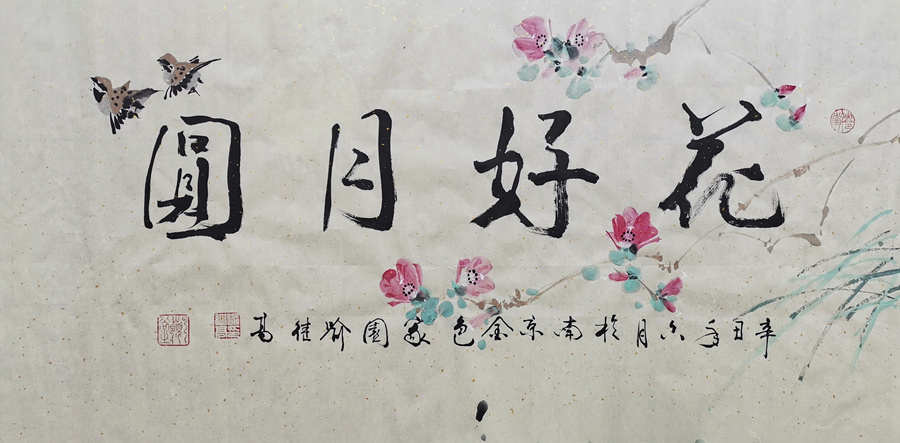 花好月圓
辛丑年六月於南京金色家園喻继高